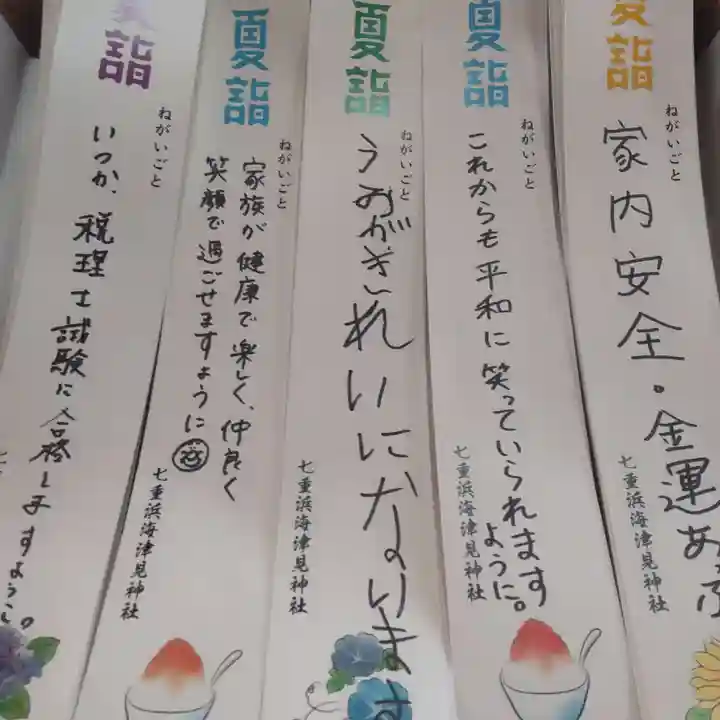 夏詣
ねがいごと
家内安全。金運あっぷ
七重浜海津見神社
夏詣
ねがいごと
これからも平和に笑っていられます
ように。
七重浜海津見神社
夏詣
ねがいごと
うみがきれいになります
七重浜海津見神社
夏詣
ねがいごと
家族が健康で楽しく、仲良く
笑顔で過ごせますように
七重浜海津見神社
夏詣
ねがいごと
いつか、税理士試験に合格しますように。